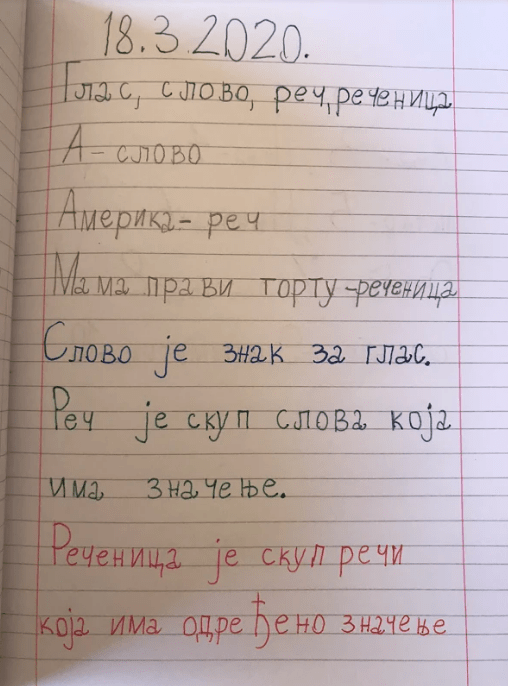 18.3.2020.
Глас, слово, реч, реченица
А - слово
Америка - реч
Мама прави торту - реченица
Слово је знак за глас.
Реч је скуп слова која
има значење.
Реченица је скуп речи
која има одређено значење